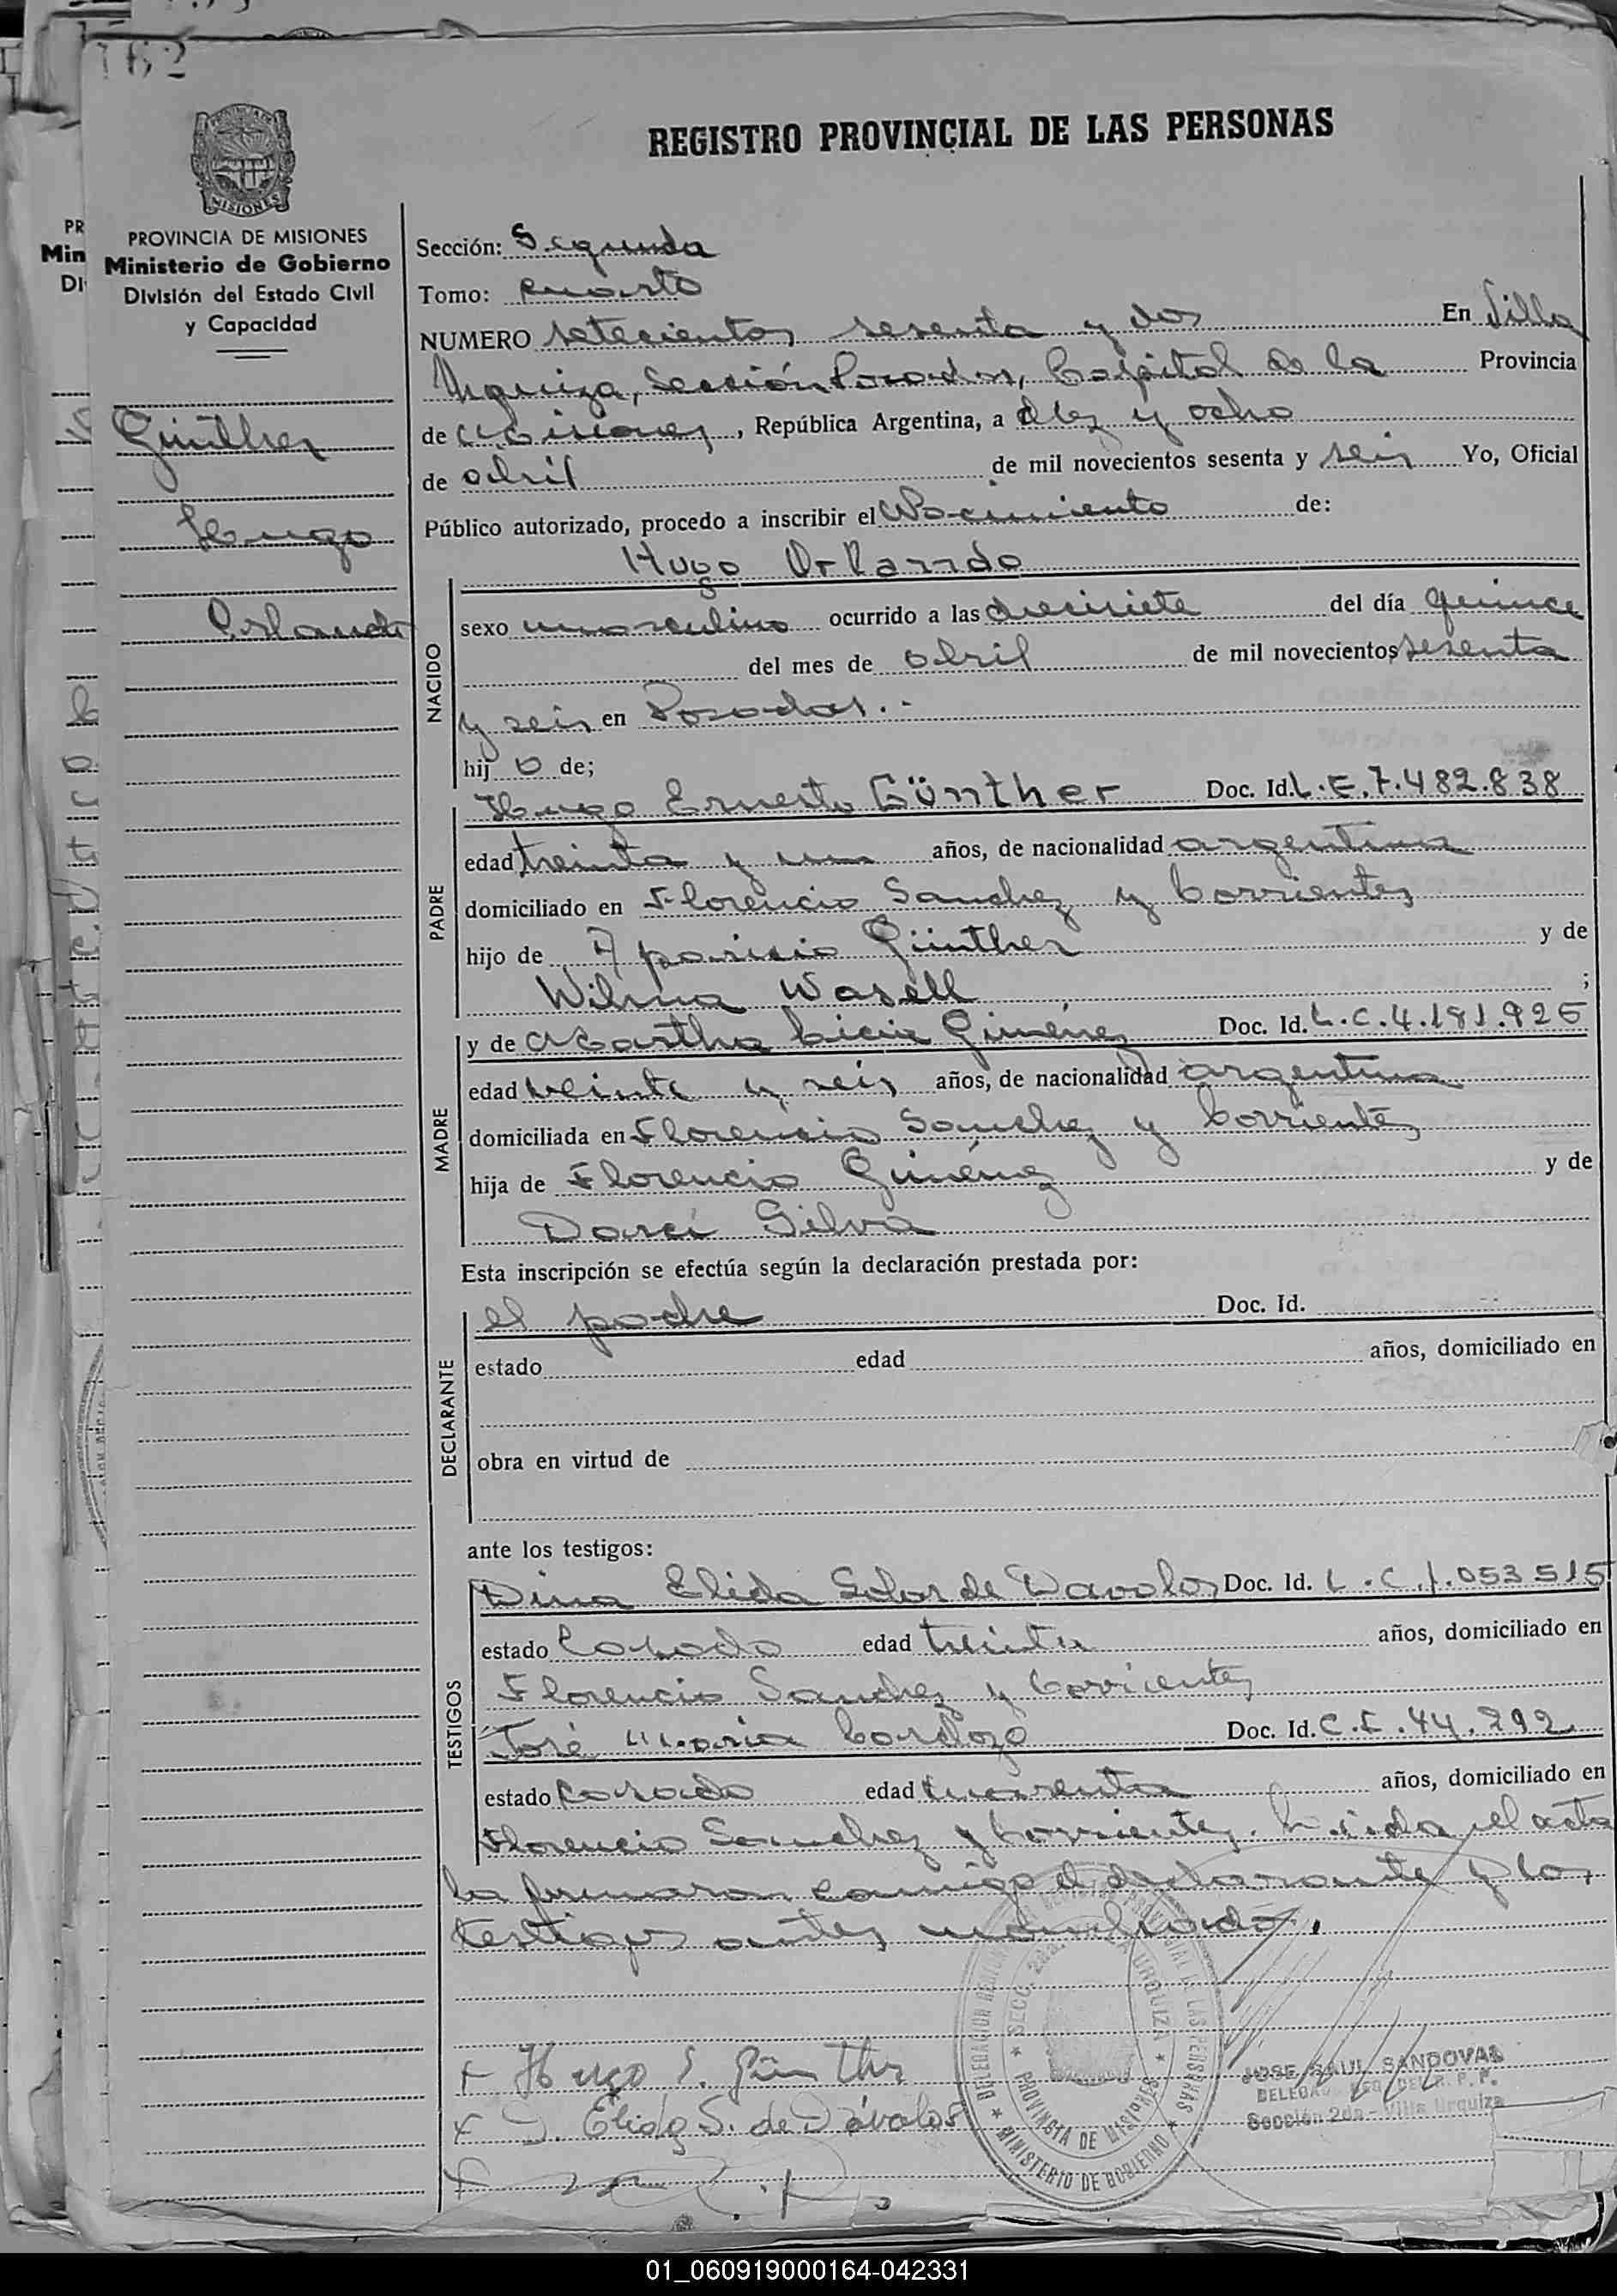 162
REGISTRO PROVINCIAL DE LAS PERSONAS
MISIONES
PROVINCIA DE MISIONES
Ministerio de Gobierno
División del Estado Civil
y Capacidad
Günther
Hugo
Orlando
Sección: Segunda
Tomo: cuarto
NUMERO setecientos sesenta y dos En Villa
Urquiza, Sección Posadas, Capital de la Provincia
de Misiones, República Argentina, a diez y ocho
de abril de mil novecientos sesenta y seis Yo, Oficial
Público autorizado, procedo a inscribir el Nacimiento de:
Hugo Orlando
NACIDO
sexo masculino ocurrido a las diecisiete del día quince
del mes de abril de mil novecientos sesenta
y seis en Posadas.-
hij o de;
PADRE
Hugo Ernesto Günther Doc. Id. L.E. 7.482.838
edad treinta y un años, de nacionalidad argentina
domiciliado en Florencio Sanchez y Corrientes
hijo de Aparicio Günther y de
Wilma Wasell ;
MADRE
y de Martha Giménez Doc. Id. L.C. 4.181.926
edad veinte y seis años, de nacionalidad argentina
domiciliada en Florencio Sanchez y Corrientes
hija de Florencio Giménez y de
Darci Silva
Esta inscripción se efectúa según la declaración prestada por:
DECLARANTE
el padre Doc. Id.
estado edad años, domiciliado en
obra en virtud de
ante los testigos:
TESTIGOS
Dina Elida de Davalos Doc. Id. L.C. 1.053515
estado Casada edad treinta años, domiciliado en
Florencio Sanchez y Corrientes
José María Cardozo Doc. Id. C.I. 44.292
estado Casado edad cuarenta años, domiciliado en
Florencio Sanchez y Corrientes. Leida el acta
la firmaron conmigo el declarante y los
testigos antes nombrados.
+ Hugo E. Günther
+ D. Elida S. de Dávalos
DELEGACION REGISTRO PROVINCIAL DE LAS PERSONAS
SECC. 2da. VILLA URQUIZA
PROVINCIA DE MISIONES
MINISTERIO DE GOBIERNO
JOSE SAUL SANDOVAL
Sección 2da - Villa Urquiza
01_060919000164-042331